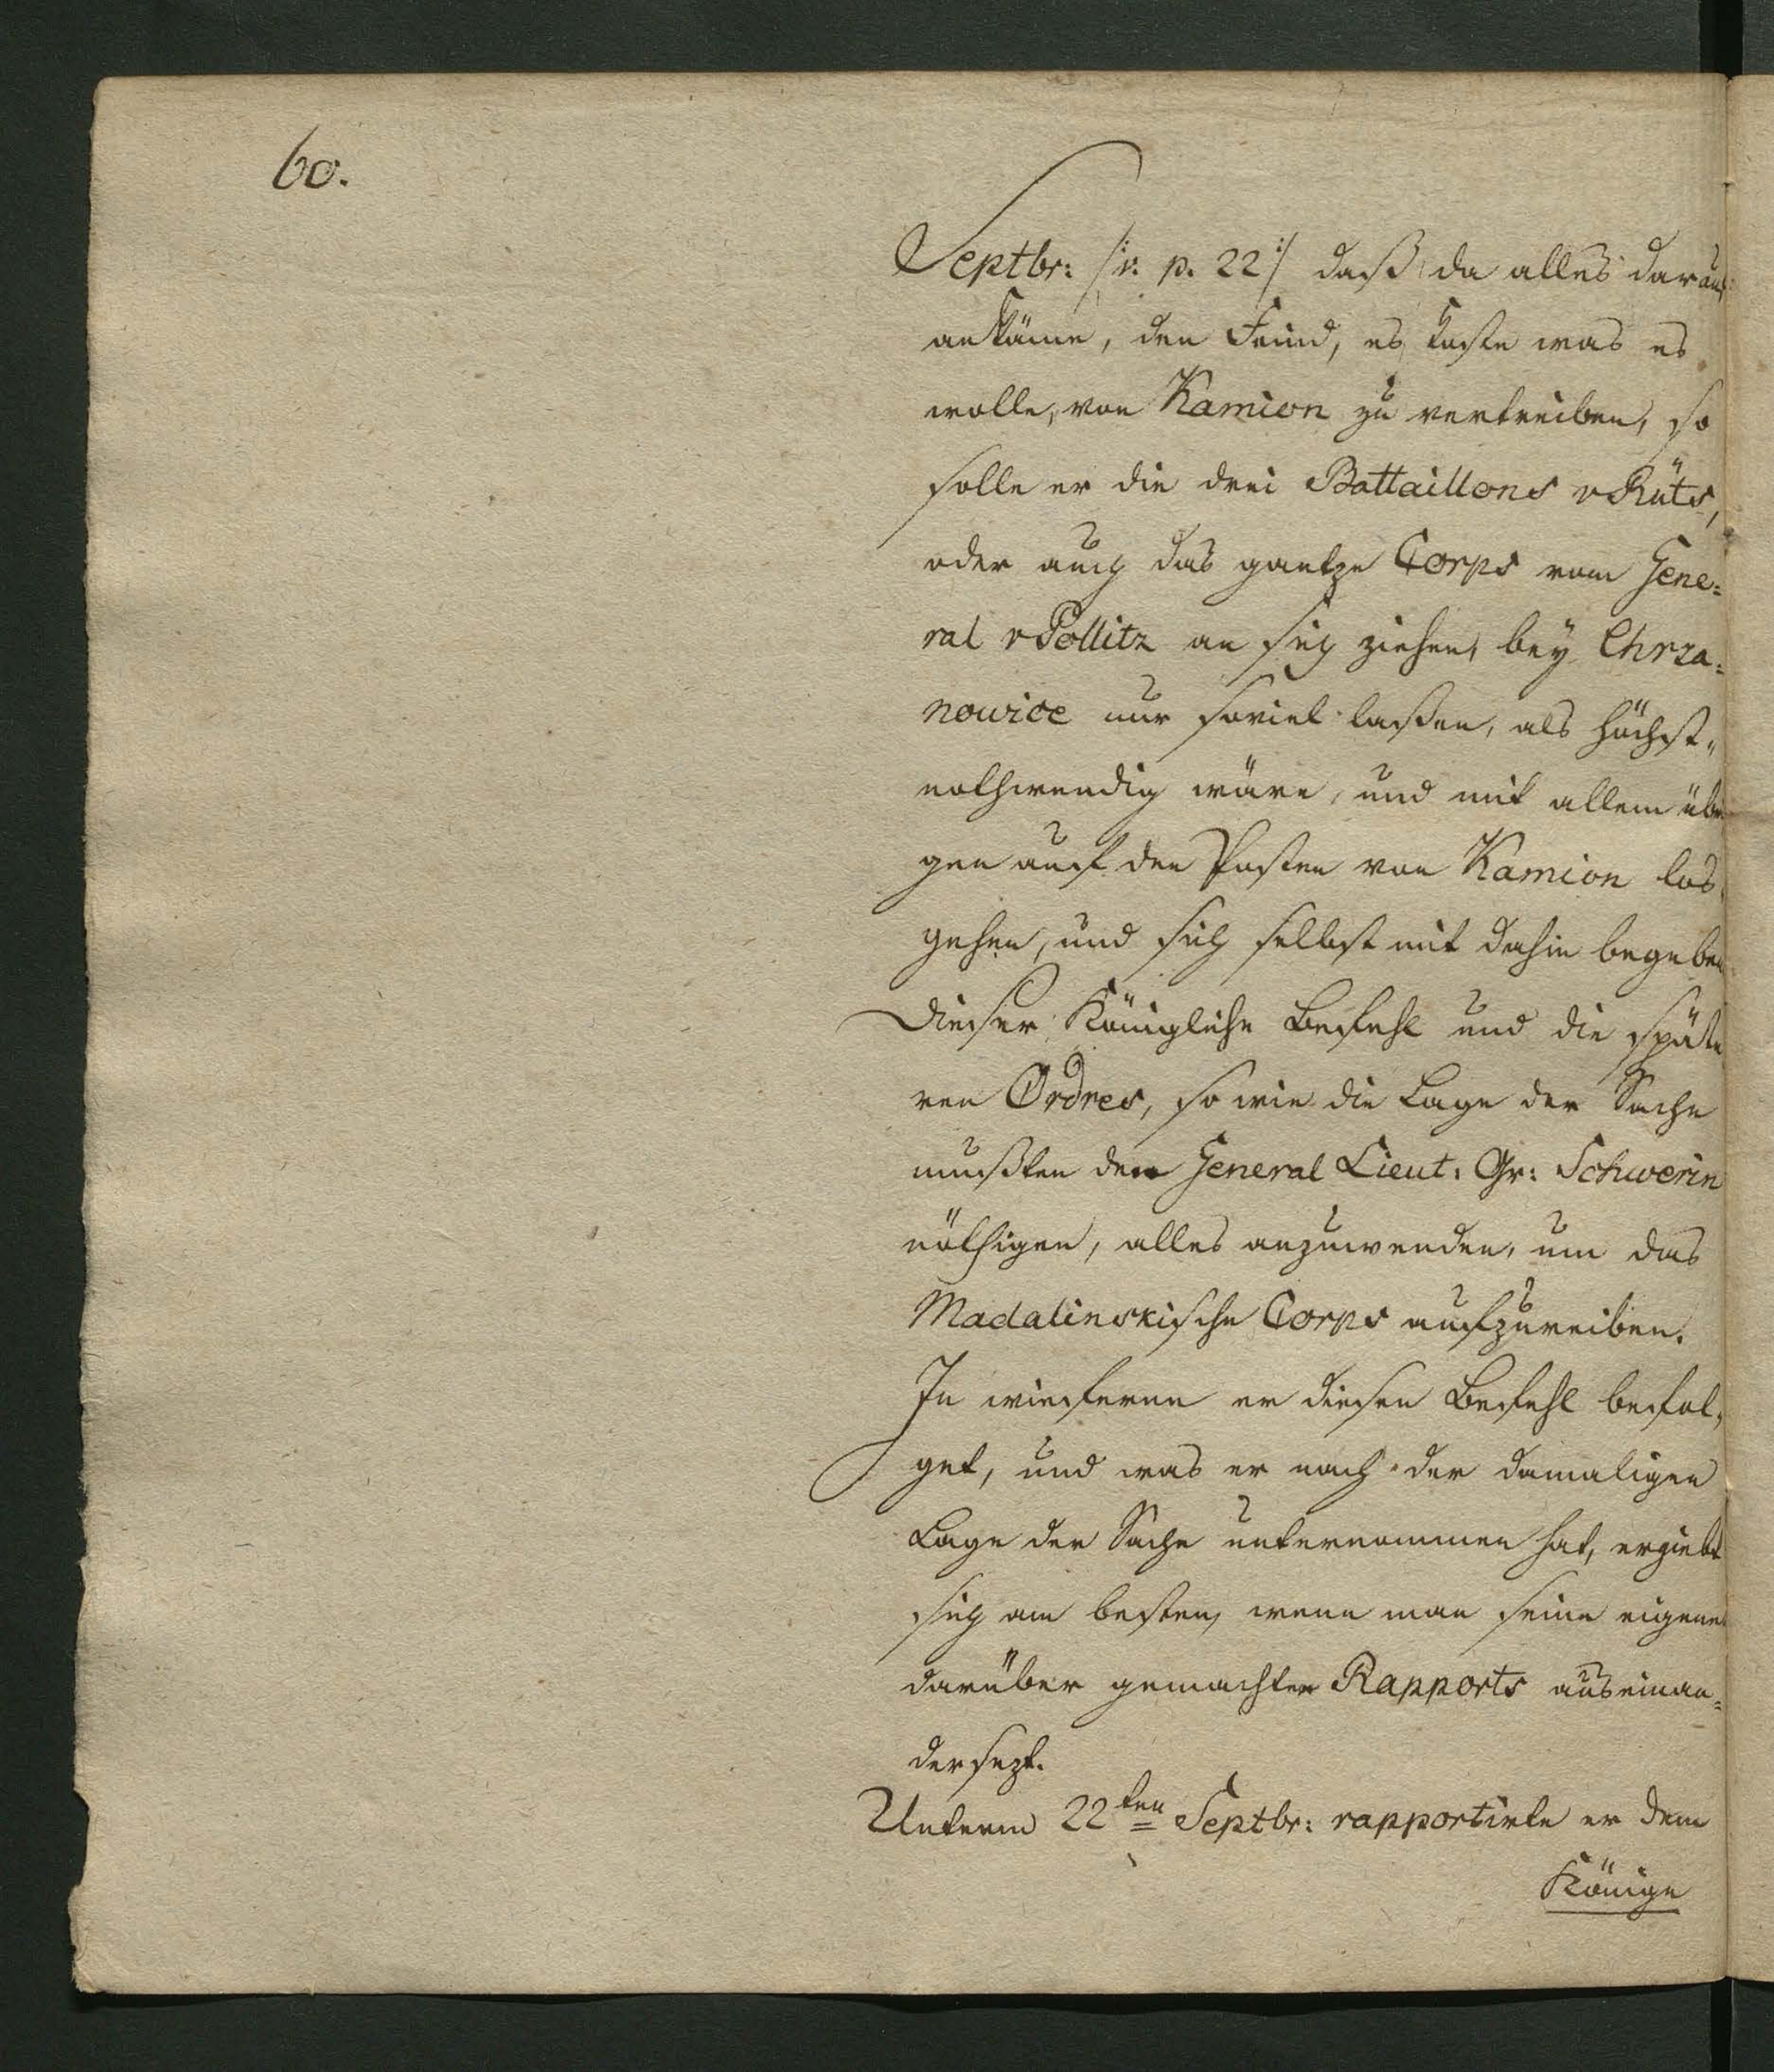 60.
Septbr: /:v. p. 22:/ daß da alles darauf
ankäme, den Feind, es koste was es
wolle, von Kamion zu vertreiben, so
solle er die drei Battaillons v Rüts,
oder auch das gantze Corps vom Gene:
ral v Pollitz an sich ziehen, bey Chrza:
nowice nur soviel laßen, als höchst„
nothwendig wäre, und mit allem übri
gen auf den Posten von Kamion los
gehen, und sich selbst mit dahin begeben
Dieser Königliche Befehl und die späte
ren Ordres, so wie die Lage der Sache
mußten den General Lieut: Gr: Schwerin
nöthigen, alles anzuwenden, um das
Madalinskische Corps aufzureiben.
In wieferne er diesen Befehl befol„
get, und was er nach der damaligen
Lage der Sache unternommen hat, ergiebt
sich am besten, wenn man seine eigene
darüber gemachten Rapports auseinan=
dersezt.
Unterm 22ten Septbr: rapportirte er dem
Könige